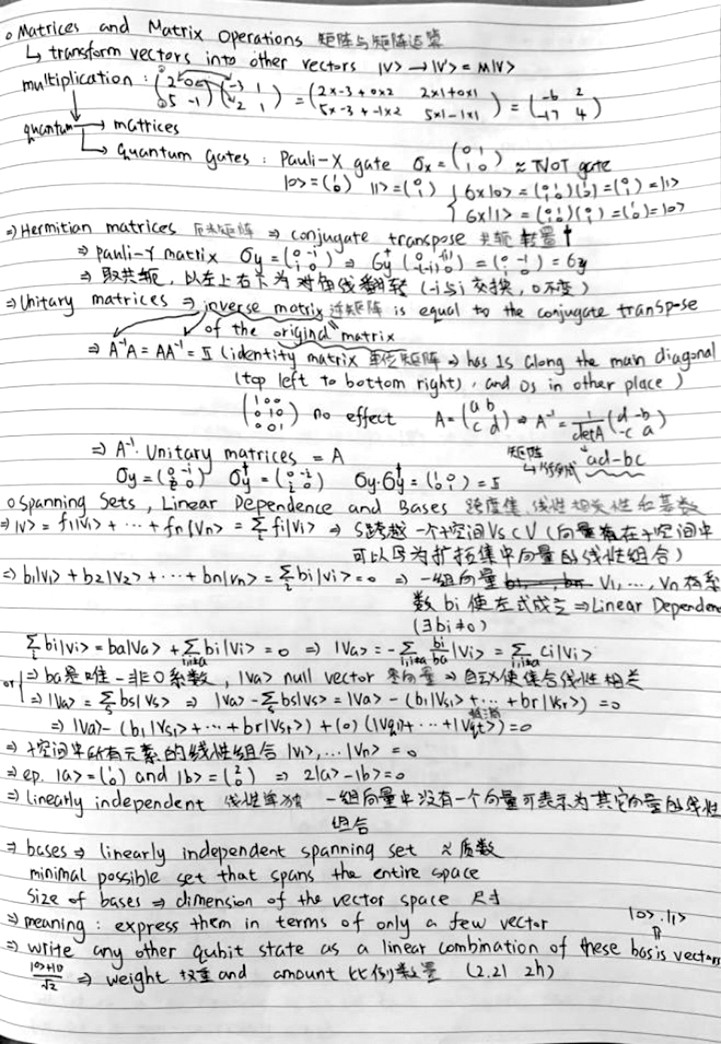 ○ Matrices and Matrix Operations 矩阵与矩阵运算
↳ transform vectors into other vectors |V> → |V'> = M|V>
multiplication : (2 0; 5 -1)(-3 1; 2 1) = (2×-3+0×2 2×1+0×1; 5×-3+-1×2 5×1-1×1) = (-6 2; -17 4)
quantum → matrices
↳ quantum gates : Pauli-X gate σx = (0 1; 1 0) ≈ NOT gate
|0> = (1; 0) |1> = (0; 1) { 6x|0> = (0 1; 1 0)(1; 0) = (0; 1) = |1>
6x|1> = (0 1; 1 0)(0; 1) = (1; 0) = |0>
⇒ Hermitian matrices 矩阵 ⇒ conjugate transpose 共轭 转置 †
⇒ pauli-Y matrix σy = (0 -i; i 0) ⇒ 6y† = (0 -i; i 0) = 6y
⇒ 取共轭, 以左上右下为对角线翻转 (-i与i 交换, 0不变)
⇒ Unitary matrices ⇒ inverse matrix 逆矩阵 is equal to the conjugate transpose
of the original matrix
⇒ A⁻¹A = AA⁻¹ = I (identity matrix 单位矩阵 ⇒ has 1s along the main diagonal
(top left to bottom right), and 0s in other place )
(1 0 0; 0 1 0; 0 0 1) no effect A = (a b; c d) ⇒ A⁻¹ = 1/detA (d -b; -c a)
⇒ A⁻¹· Unitary matrices = A 矩阵 ↳ 行列式 ad-bc
σy = (0 -i; i 0) σy† = (0 -i; i 0) σy·σy† = (1 0; 0 1) = I
○ Spanning Sets, Linear Dependence and Bases 跨度集, 线性相关性和基数
⇒ |V> = f1|V1> + ··· + fn|Vn> = Σ fi|Vi> ⇒ S跨越一个子空间 Vs ⊂ V (向量存在子空间中
可以写为扩拓集中向量的线性组合)
⇒ b1|V1> + b2|V2> + ··· + bn|Vn> = Σ bi|Vi> = 0 ⇒ 一组向量 V1, ..., Vn 存系
数 bi 使左式成立 ⇒ Linear Dependen
(∃bi≠0)
Σ bi|Vi> = ba|Va> + Σ bi|Vi> = 0 ⇒ |Va> = -Σ bi/ba |Vi> = Σ Ci|Vi>
or ⇒ ba是唯一非0系数, |Va> null vector 零向量 ⇒ 自动使集合线性相关
⇒ |Va> = Σ bs|Vs> ⇒ |Va> - Σ bs|Vs> = |Va> - (b1|Vs1> + ··· + br|Vsr>) = 0
⇒ |Va> - (b1|Vs1> + ··· + br|Vsr>) + (0)(|Vq1> + ··· + |Vqt>) = 0
⇒ 子空间中所有元素的线性组合 |V1>, ... |Vn> = 0
⇒ ep. |a> = (1; 0) and |b> = (2; 0) ⇒ 2|a> - |b> = 0
⇒ linearly independent 线性单独 一组向量中没有一个向量可表示为其它向量的线性
组合
⇒ bases ⇒ linearly independent spanning set ≈ 质数
minimal possible set that spans the entire space
Size of bases ⇒ dimension of the vector space 尺寸
⇒ meaning : express them in terms of only a few vector |0>.|1>
⇒ write any other qubit state as a linear combination of these basis vectors
|0>+|1>/√2 ⇒ weight 权重 and amount 比例数量 (2.21 2h)